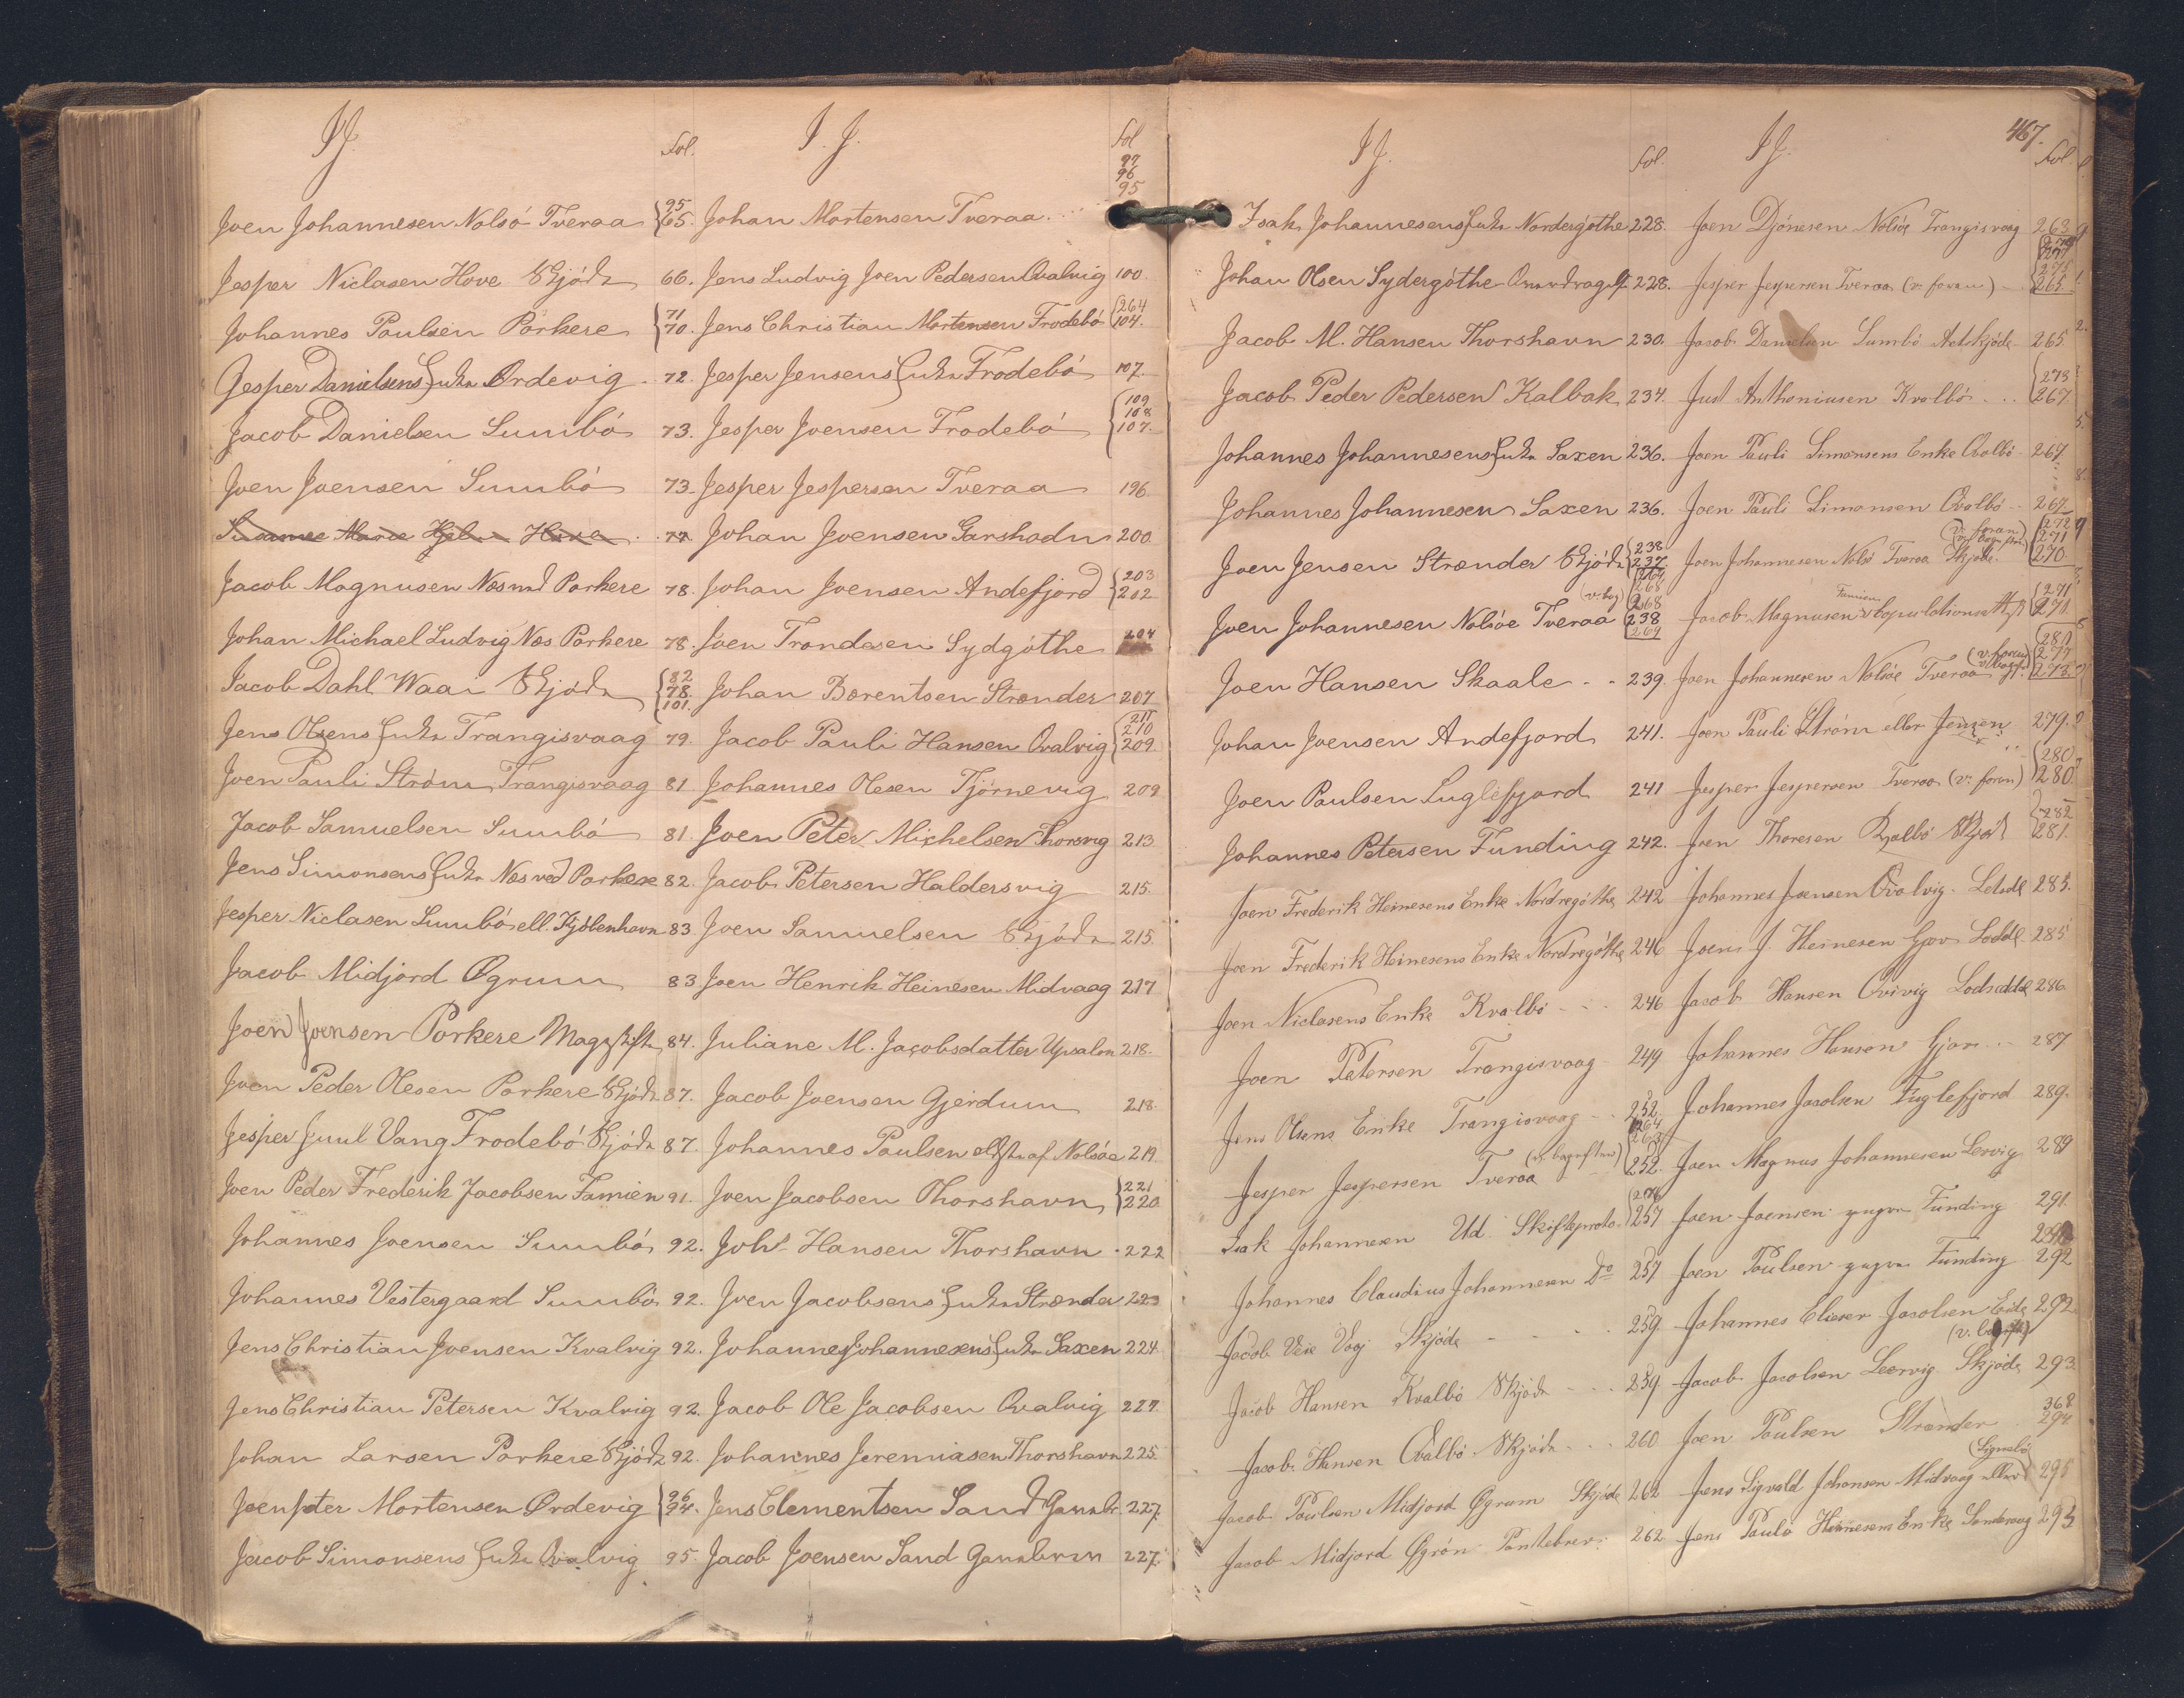 IJ.
Fol.
Joen Johannesen Nolsö Tveraa {95 65.
Jesper Niclasen Hove Skjöde 66.
Johannes Paulsen Porkere {71 70.
Jesper Danielsens Enke Ördevig 72.
Jacob Danielsen Sumbö 73.
Joen Joensen Sumbö 73.
77
Jacob Magnusen Næs ved Porkere 78.
Johan Michael Ludvig Næs Porkere 78.
Jacob Dahl Waai Skjöde {82 78. 101.
Jens Olsens Enke Trangisvaag 79.
Joen Pauli Ström Trangisvaag 81
Jacob Samuelsen Sumbö 81.
Jens Simonsens Enke Næs ved Porkere 82.
Jesper Niclasen Sumbö ell. Kjöbenhavn 83
Jacob Midjord Øgrum 83
Joen Joensen Porkere Mageskifte 84.
Joen Peder Olesen Porkere Skjöde 87.
Jesper Juul Vang Frodebö Skjöde 87.
Joen Peder Frederik Jacobsen Famien 91.
Johannes Joensen Sumbö 92.
Johannes Vestergaard Sumbö 92.
Jens Christian Joensen Kvalvig 92.
Jens Christian Petersen Kvalvig 92.
Johan Larsen Porkere Skjöde 92.
Joen Peter Mortensen Ördevig {96 94.
Jacob Simonsens Enke Qvalvig 95.
I. J.
Fol
97
96
95
Johan Mortensen Tveraa
Jens Ludvig Joen Pedersen Qvalvig 100.
Jens Christian Mortensen Frodebö {264 104.
Jesper Jensens Enke Frodebö 107.
Jesper Joensen Frodebö {109 108 107.
Jesper Jespersen Tveraa 196.
Johan Joensen Garshodn 200.
Johan Joensen Andefjord {203 202
Joen Trondesen Sydgöthe 204
Johan Børentsen Strænder 207
Jacob Pauli Hansen Qvalvig {211 210 209.
Johannes Olesen Tjörnevig 209
Joen Peter Michelsen Thorsvig 213
Jacob Petersen Haldersvig 215.
Joen Samuelsen Skjöde 215.
Joen Henrik Heinesen Midvaag 217
Juliane M. Jacobsdatter Upsalen 218.
Jacob Joensen Gjerdum 218.
Johannes Paulsen af Nolsöe 219.
Joen Jacobsen Thorshavn {221 220
Joh. Hansen Thorshavn 222
Joen Jacobsens Enke Strænder 223
Johannes Johannesens Enke Saxen 224
Jacob Ole Jacobsen Qvalvig 227.
Johannes Jeremiasen Thorshavn 225.
Jens Clementsen Sand 227.
Jacob Joensen Sand 227.
IJ.
Fol.
Isak Johannesens Enke Nordergöthe 228.
Johan Olsen Sydergöthe 228.
Jacob M. Hansen Thorshavn 230.
Jacob Peder Pedersen Kalbak 234.
Johannes Johannesens Enke Saxen 236.
Johannes Johannesen Saxen 236.
Joen Jensen Strænder Skjöde {238 237.
Joen Johannesen Nolsöe Tveraa 268 238 269
Joen Hansen Skaale 239.
Johan Joensen Andefjord 241.
Joen Paulsen Fuglefjord 241
Johannes Petersen Funding 242.
Joen Frederik Heinesens Enke Nordregöthe 242
Joen Frederik Heinesens Enke Nordregöthe 246
Joen Niclasens Enke Kvalbö 246
Joen Petersen Trangisvaag 249
Jens Olsens Enke Trangisvaag 252.
Jesper Jespersen Tveraa 252.
Isak Johannesen Ud. Skifteproto. 257
Johannes Claudius Johannesen Do 257
Jacob Skjöde 259.
Jacob Hansen Kvalbö Skjöde 259.
Jacob Hansen Qvalbö Skjöde 260
Jacob Paulsen Midjord Øgrum Skjöde 262
Jacob Midjord Øgrön Pantebrev: 262
IJ.
467.
Fol.
Joen Djönesen Nolsöe Trangisvaag 263
Jesper Jespersen Tveraa (v. foran) 265
Jacob Danielsen Sumbö Adkjöde 265
Just Anthoniusen Kvalbö {273 267
Joen Pauli Simonsens Enke Qvalbö 267
Joen Pauli Simonsen Qvalbö 267
(v. foran)
Joen Johannesen Nolsö Tveraa Skjöde {272 271 270
Famien
Jacob Magnusen Copulationsatt. {271 271.
(v. foran)
Joen Johannesen Nolsöe Tveraa 273.
Joen Pauli Ström eller Jensen 279.
Jesper Jespersen Tveraa (v. foran) {280 280.
Joen Thoresen Qvalbö Skjöd {282 281.
Johannes Joensen Qvalvig 285.
Joens J. Heinesen Gjov 285
Jacob Hansen Qvivig 286.
Johannes Hansen Gjov 287
Johannes Jacobsen Fuglefjord 289.
Joen Magnus Johannesen Lervig 289
Joen Joensen Funding 291.
Joen Poulsen Funding 292
Johannes Elieser Jacobsen Eide 292
Jacob Jacobsen Leervig Skjöde 293
Joen Poulsen Strænder 368 294
Jens Sigvald Johansen Midvaag 295
Jens Paulo Heinesens Enke Sandevaag 295